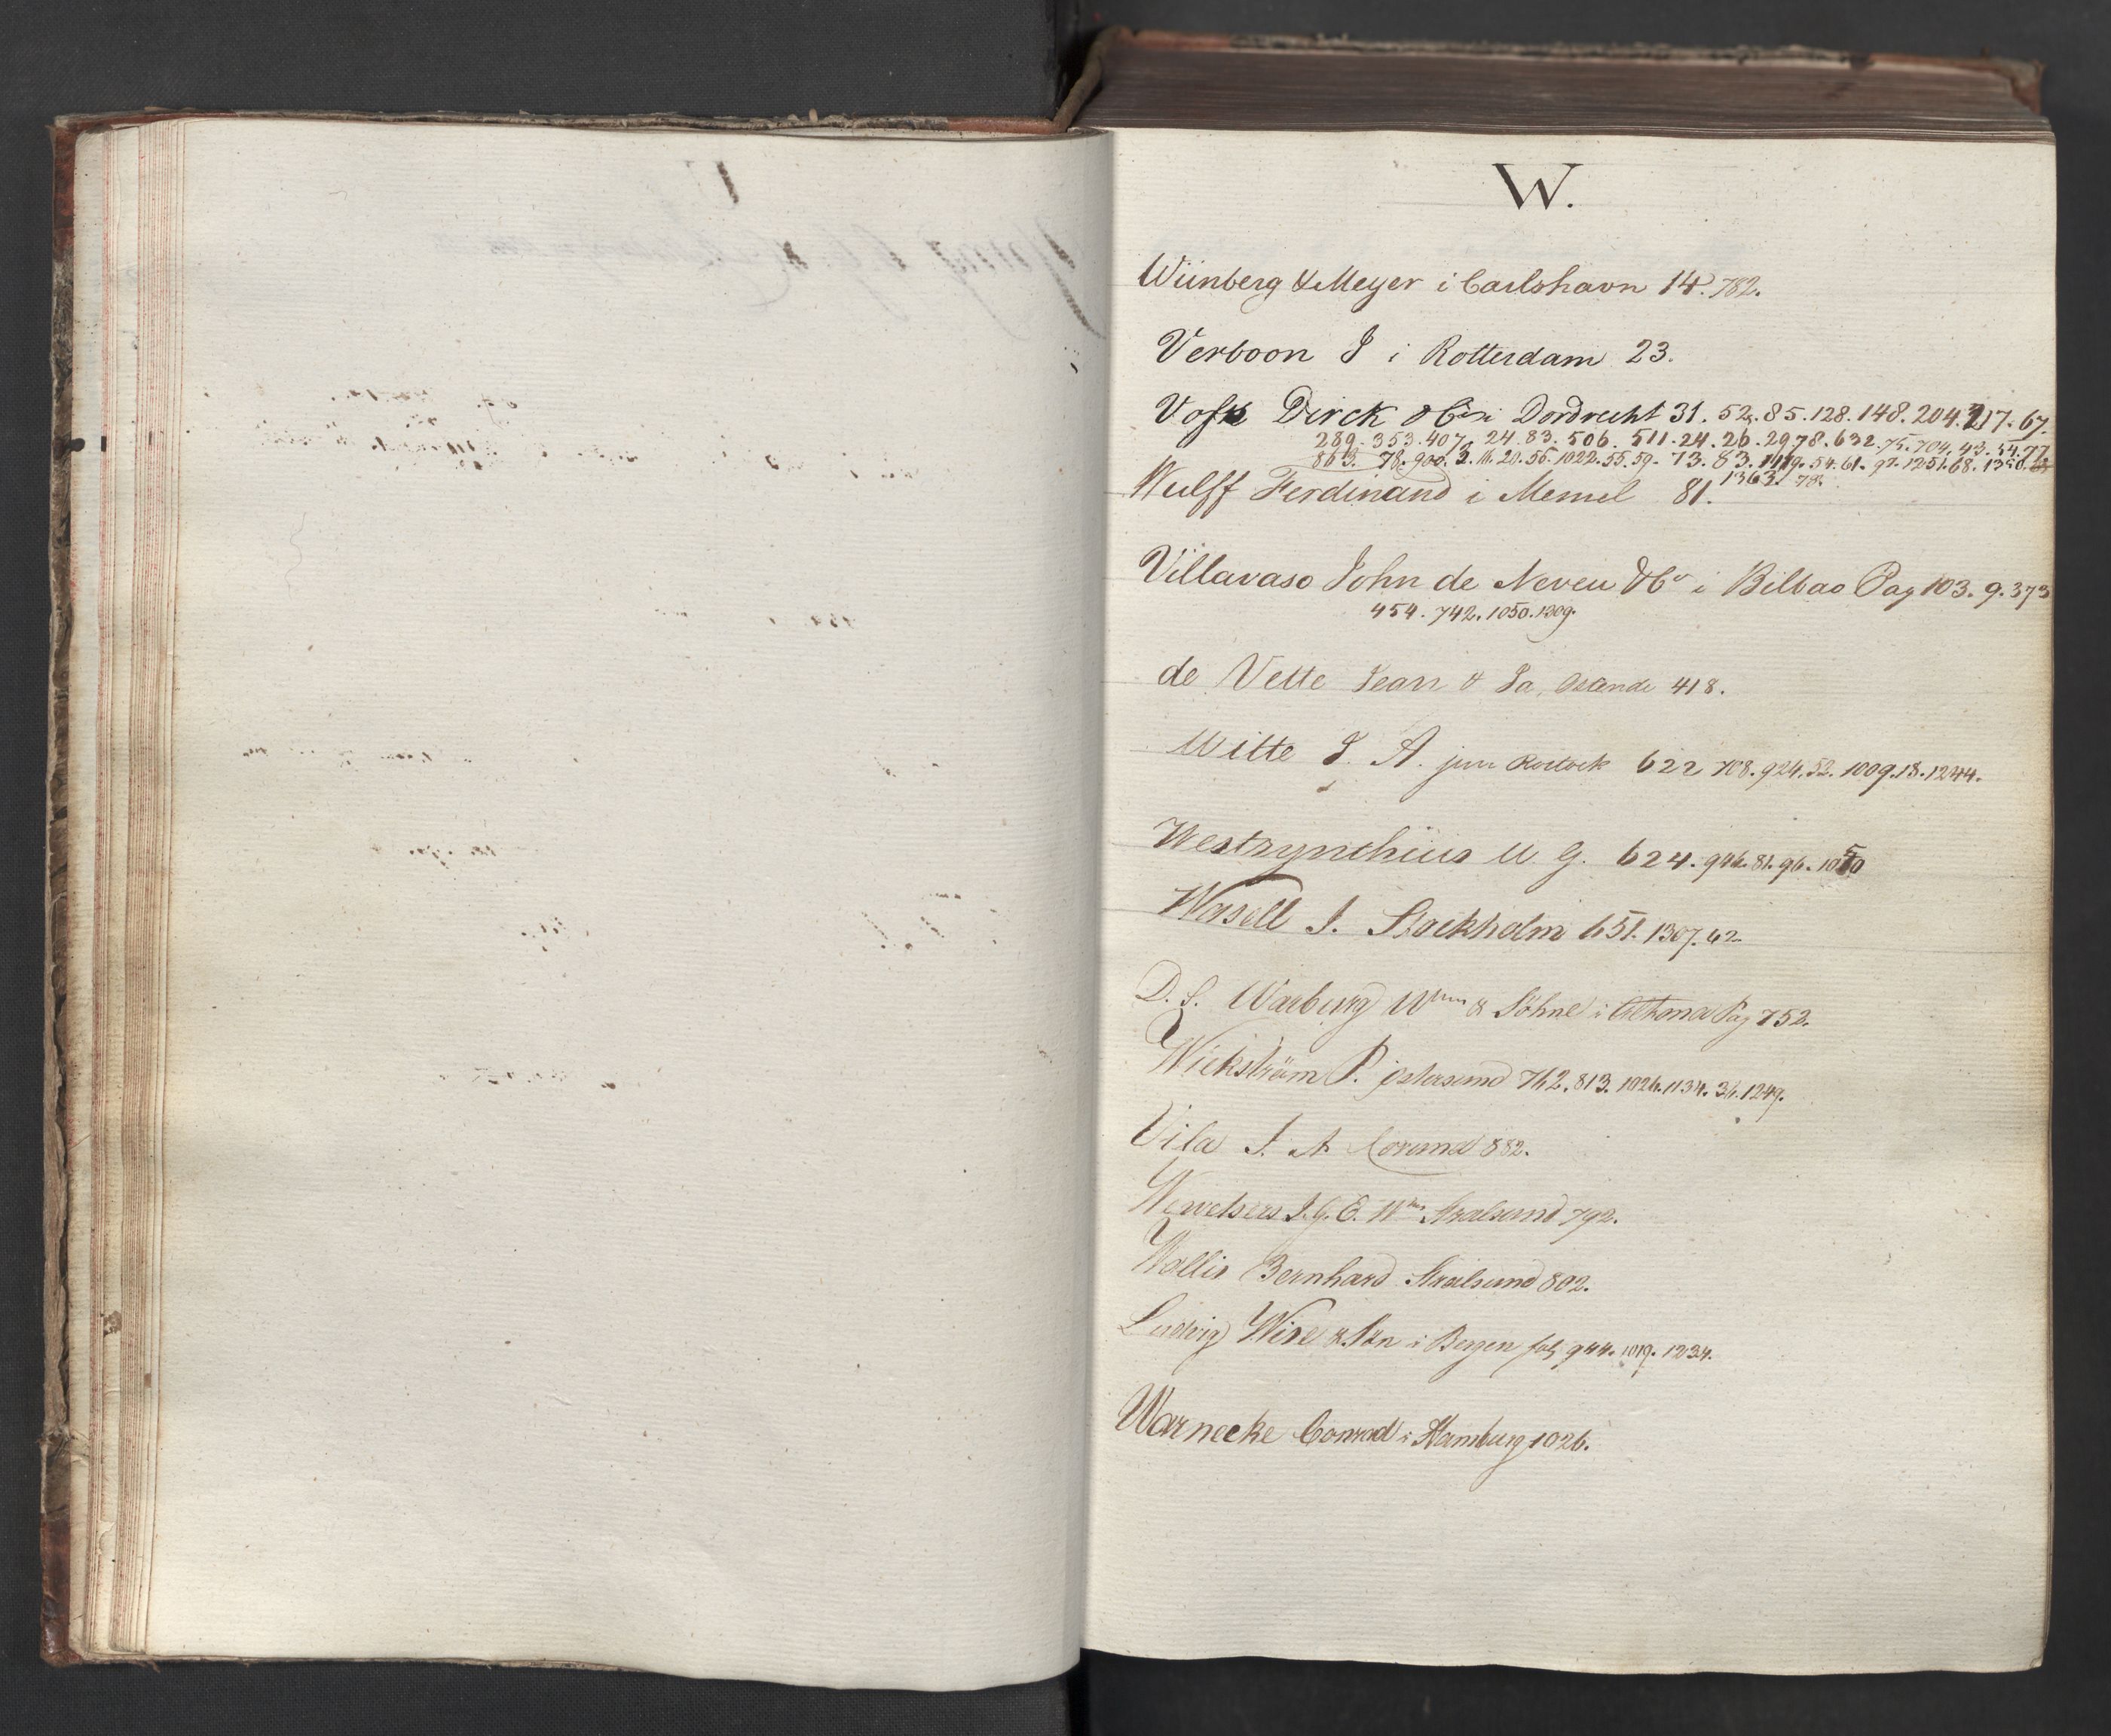 W.
Wünberg & Meyer i Carlshavn 14. 782.
Verboon J i Rotterdam 23.
Dirck & Co i Dordrecht 31. 52. 85. 128. 148. 204. 217. 67.
289. 353. 407. 24. 83. 506. 511. 24. 26. 29. 78. 632. 75. 704. 43. 54. 77.
863. 78. 900. 2. 16. 20. 56. 1022. 55. 59. 73. 83. 54. 61. 97. 1251. 68.
1363. 78.
Wulff Ferdinand i Memel 81.
Villavaso John de Neveu & Co i Bilbao Pag 103. 9. 373
454. 742. 1050. 1309.
de Vette Jean & Ostende 418.
Witte J. A. jun Rostock 622 708. 924. 52. 1009. 18. 1244.
Westzynthius W. G. 624. 946. 81. 96.
Wasell J. Stockholm 651. 1307. 42
D. S. Warburg Wwe & Söhne i Altona Pag 752.
Wickström P. östersund 762. 813. 1026. 1134. 36. 1249.
Vila J. A. Coruna 882.
J. G. E. Wwe Stralsund 792.
Wallis Bernhard Stralsund 802.
Ludvig Wise & Sön i Bergen fol 944. 1019. 1234.
Warnecke Conrad i Hamburg 1026.